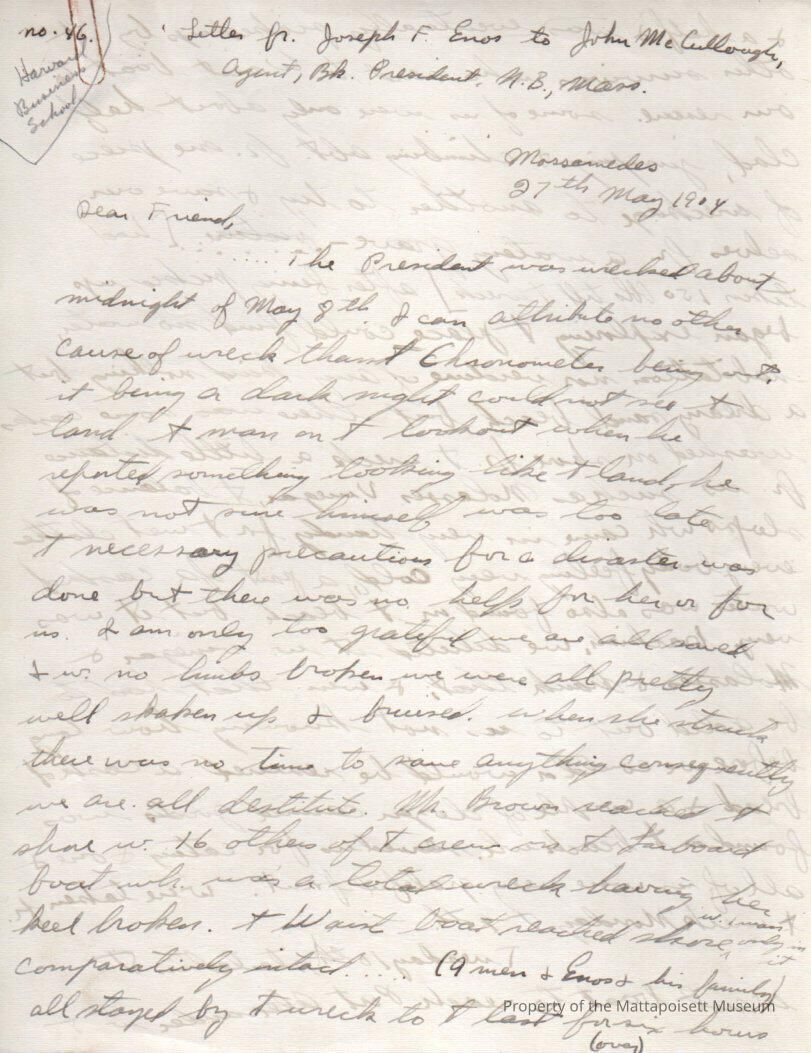 no. 46.
Harvard
Business
School
Letter fr. Joseph F. Enos to John McCullough,
Agent, Bk. President. N.B., Mass.
Mossamedes
27th May 1904
Dear Friend,
......... The President was wrecked about
midnight of May 8th I can attribute no other
cause of wreck than t Chronometer being out.
it being a dark night could not see t
land. t man on t lookout when he
reported something looking like t land, he
was not sure himself, was too late
t necessary precautions for a disaster was
done but there was no help for her or for
us. I am only too grateful we are all saved
& w. no limbs broken we were all pretty
well shaken up & bruised. when she struck
there was no time to save anything consequently
we are all destitute. Mr. Brown reached t
shore w. 16 others of t crew in t Larboard
boat wh. was a total wreck having her
keel broken. t Waist boat reached shore, w. 1 man only in it
comparatively intact .... (9 men & Enos & his family)
all stayed by t wreck to t last for six hours
(over)
Property of the Mattapoisett Museum